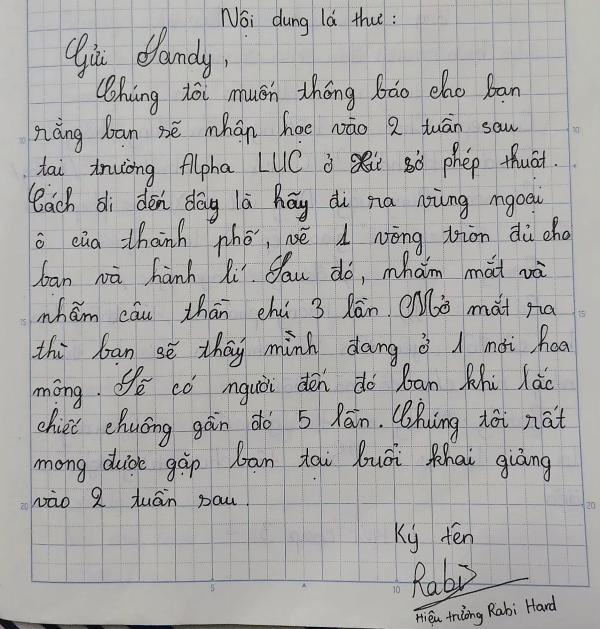 Nội dung lá thư:
Gửi Sandy,
Chúng tôi muốn thông báo cho bạn
rằng bạn sẽ nhập học vào 2 tuần sau
tại trường Alpha LUC ở xứ sở phép thuật.
Cách đi đến đây là hãy đi ra vùng ngoại
ô của thành phố, vẽ 1 vòng tròn đủ cho
bạn và hành lí. Sau đó, nhắm mắt và
nhẩm câu thần chú 3 lần. Mở mắt ra
thì bạn sẽ thấy mình đang ở 1 nơi hoa
mộng. Sẽ có người đến đó bạn khi lắc
chiếc chuông gần đó 5 lần. Chúng tôi rất
mong được gặp bạn tại buổi khai giảng
vào 2 tuần sau.
Ký tên
Rabi
Hiệu trưởng Rabi Hard
10
10
15
15
20
20
5
10